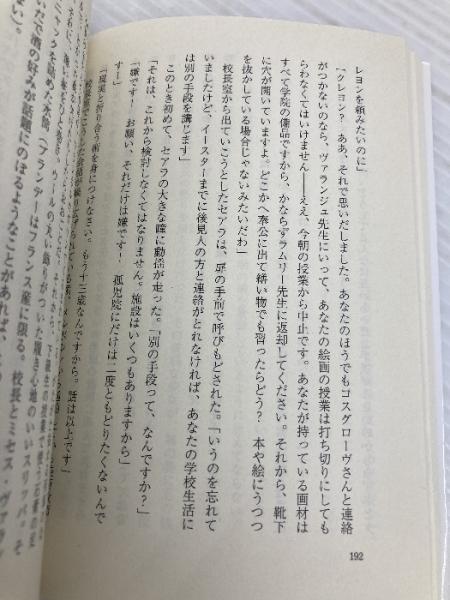 レヨンを頼みたいのに」
「クレヨン? ああ、それで思いだしました。あなたのほうでもコスグローヴさんと連絡
がつかないのなら、ヴァランジュ先生にいって、あなたの絵画の授業は打ち切りにしても
らわなくてはいけません――ええ、今朝の授業から中止です。あなたが持っている画材は
すべて学院の備品ですから、かならずラムリー先生に返却してください。それから、靴下
に穴が開いていますよ。どこかへ奉公に出て繕い物でも習ったらどう? 本や絵にうつつ
を抜かしている場合じゃないみたいだわ」
校長室から出ていこうとしたセアラは、扉の手前で呼びもどされた。「いうのを忘れて
いましたけど、イースターまでに後見人の方と連絡がとれなければ、あなたの学校生活に
は別の手段を講じます」
このとき初めて、セアラの大きな瞳に動揺が走った。「別の手段って、なんですか?」
「それは、これから検討しなくてはなりません。施設はいくつもありますから」
「嫌です! お願い、それだけは嫌です! 孤児院にだけは二度ともどりたくないんで
すー」
「現実と折り合う術を身につけなさい。もう十三歳なんですから。話は以上です」
校長室で
ウールの丸い飾りがついた履き心地のいいスリッパ。そ
ニャックを詰めた水筒(ブランデーはフランス産に限る。校長とミセス・ヴァラン
いだで酒の好みが話題にのぼるようなことがあれば、
ない)。
192